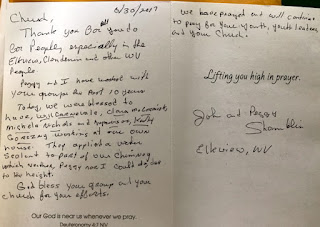 Church, 6/30/2017
Thank you for all you do
for People, especially in the
Elkview, Clendenin and other WV
People
Peggy and I have worked with
your groups the past 10 years
Today, we were blessed to
have, Will
Michele Nichols and Supervisor,
working at our own
house. They applied a water
Sealant to part of our Chimney
which neither Peggy nor I could do, due
to the height.
God bless your group and your
church for your efforts.
Our God is near us whenever we pray.
Deuteronomy 4:7 NIV
We have prayed and will continue
to pray for your youth, youth leaders
and your Church.
Lifting you high in prayer.
John and Peggy
Shamblin
Elkview, WV